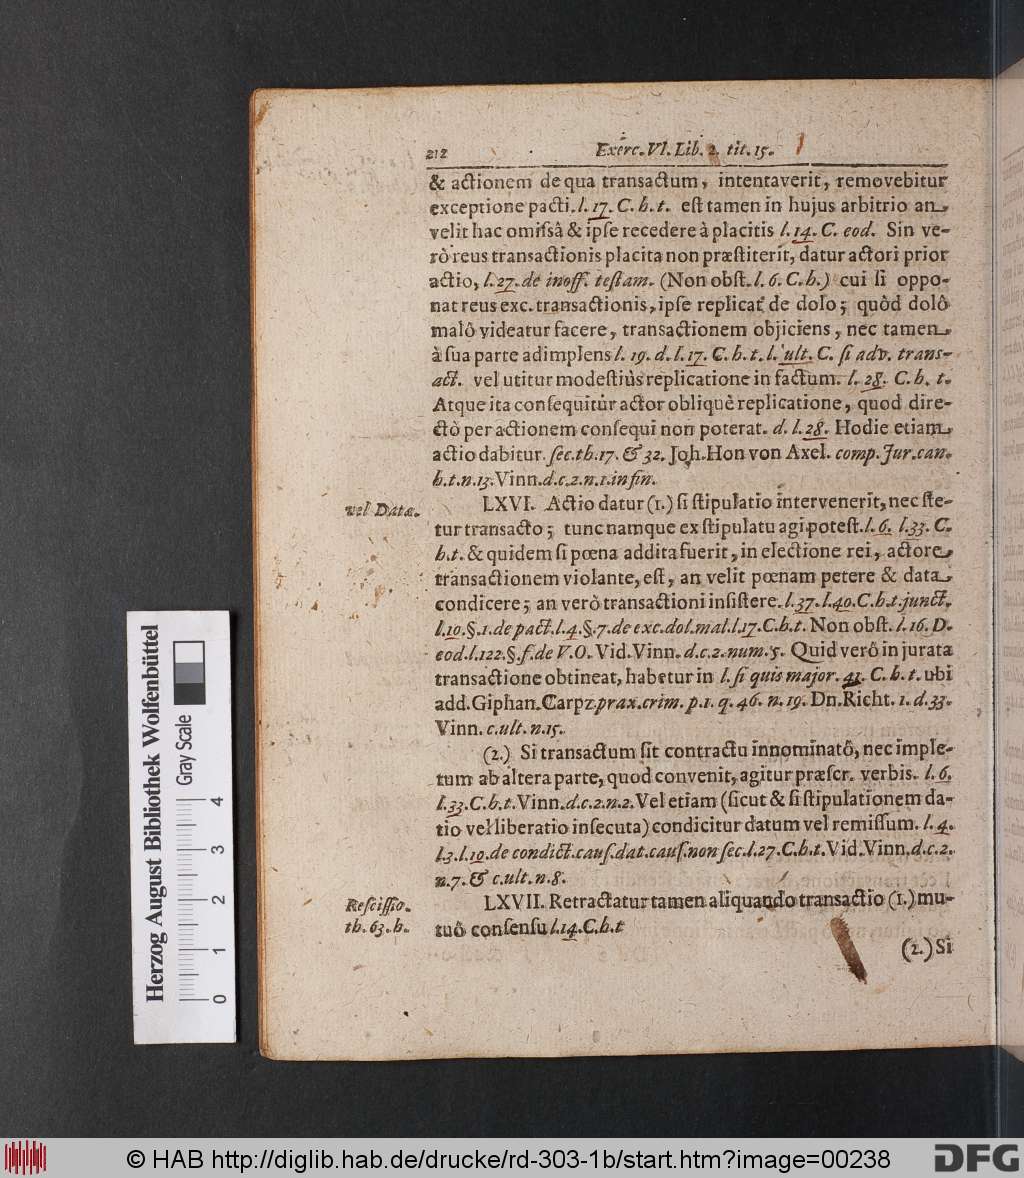 212 Exerc. VI. Lib. 2. tit. 15.
& actionem de qua transactum, intentaverit, removebitur
exceptione pacti. l. 17. C. h. t. est tamen in hujus arbitrio an
velit hac omissâ & ipse recedere à placitis l. 14. C. eod. Sin ve-
rò reus transactionis placita non præstiterit, datur actori prior
actio, l. 27. de inoff. testam. (Non obst. l. 6. C. h.) cui si oppo-
nat reus exc. transactionis, ipse replicat de dolo; quòd dolô
malô videatur facere, transactionem objiciens, nec tamen
à sua parte adimplens l. 19. d. l. 17. C. h. t. l. ult. C. si adv. trans-
act. vel utitur modestiùs replicatione in factum. l. 28. C. h. t.
Atque ita consequitur actor obliquè replicatione, quod dire-
ctò per actionem consequi non poterat. d. l. 28. Hodie etiam
actio dabitur. sec. th. 17. & 32. Joh. Hon von Axel. comp. Jur. can.
h. t. n. 13. Vinn. d. c. 2. n. 1. in fin.
vel Datæ.
LXVI. Actio datur (1.) si stipulatio intervenerit, nec ste-
tur transacto; tunc namque ex stipulatu agi potest. l. 6. l. 33. C.
h. t. & quidem si pœna addita fuerit, in electione rei, actore
transactionem violante, est, an velit pœnam petere & data
condicere; an verò transactioni insistere. l. 37. l. 40. C. h. t. junct.
l. 10. §. 1. de pact. l. 4. §. 7. de exc. dol. mal. l. 17. C. h. t. Non obst. l. 16. D.
eod. l. 122. §. f. de V. O. Vid. Vinn. d. c. 2. num. 5. Quid verò in jurata
transactione obtineat, habetur in l. si quis major. 41. C. h. t. ubi
add. Giphan. Carpz. prax. crim. p. 1. q. 46. n. 19. Dn. Richt. 1. d. 33.
Vinn. c. ult. n. 15.
(2.) Si transactum sit contractu innominatô, nec imple-
tum ab altera parte, quod convenit, agitur præscr. verbis. l. 6.
l. 33. C. h. t. Vinn. d. c. 2. n. 2. Vel etiam (sicut & si stipulationem da-
tio vel liberatio insecuta) condicitur datum vel remissum. l. 4.
l. 3. l. 10. de condict. caus. dat. caus. non sec. l. 27. C. h. t. Vid. Vinn. d. c. 2.
n. 7. & c. ult. n. 8.
Rescissio.
th. 63. h.
LXVII. Retractatur tamen aliquando transactio (1.) mu-
tuô consensu l. 14. C. h. t
(2.) Si
Herzog August Bibliothek Wolfenbüttel
Gray Scale
0 1 2 3 4
© HAB http://diglib.hab.de/drucke/rd-303-1b/start.htm?image=00238
DFG